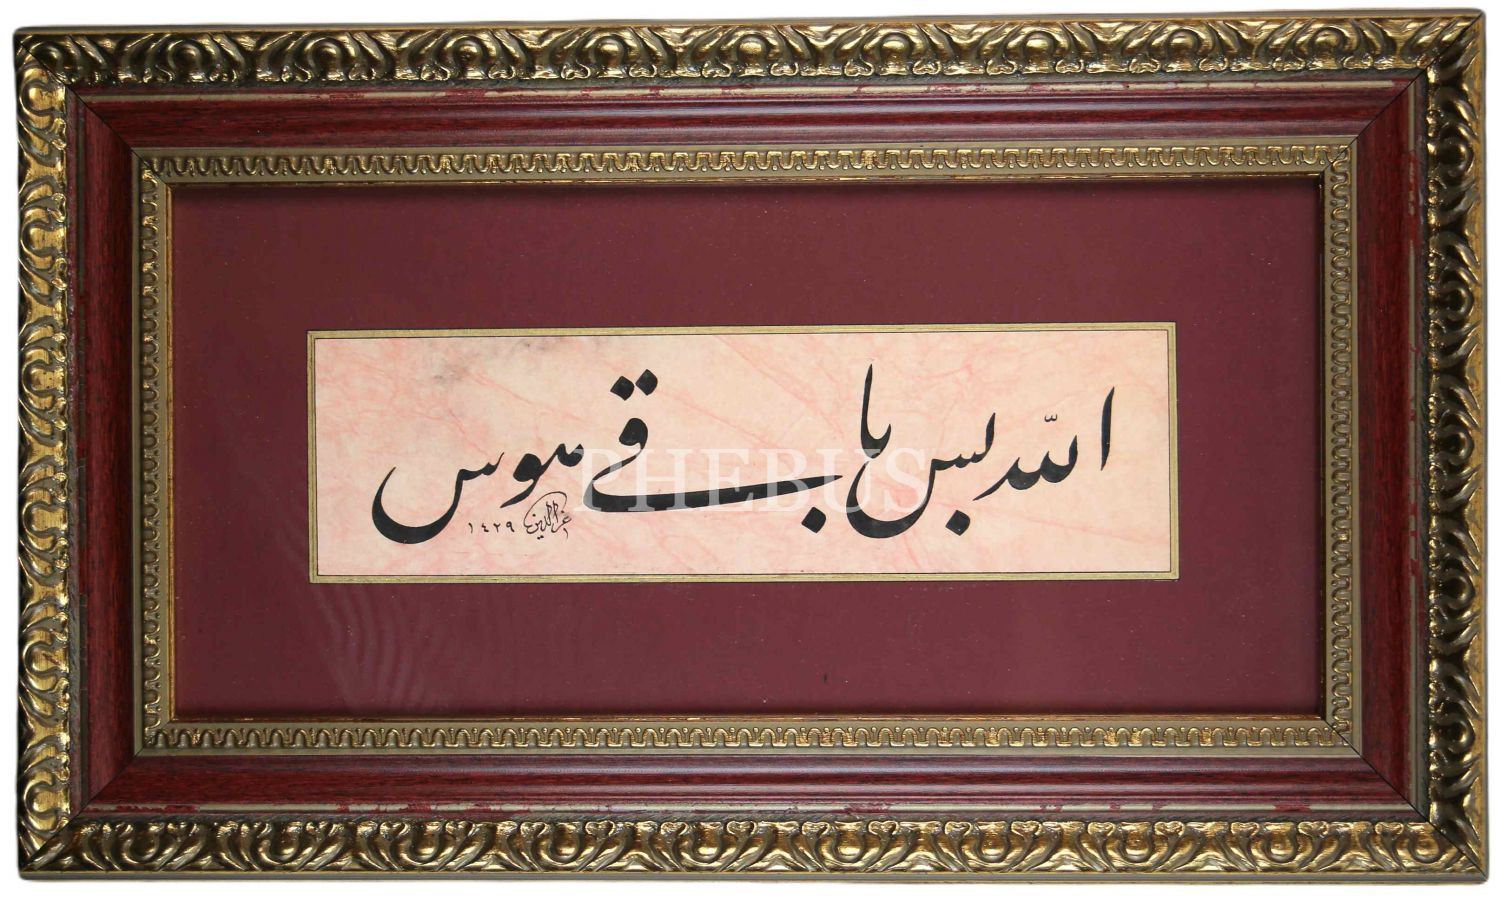 الله بس باقى هوس
عزالدين ١٤٢٩
PHEBUS